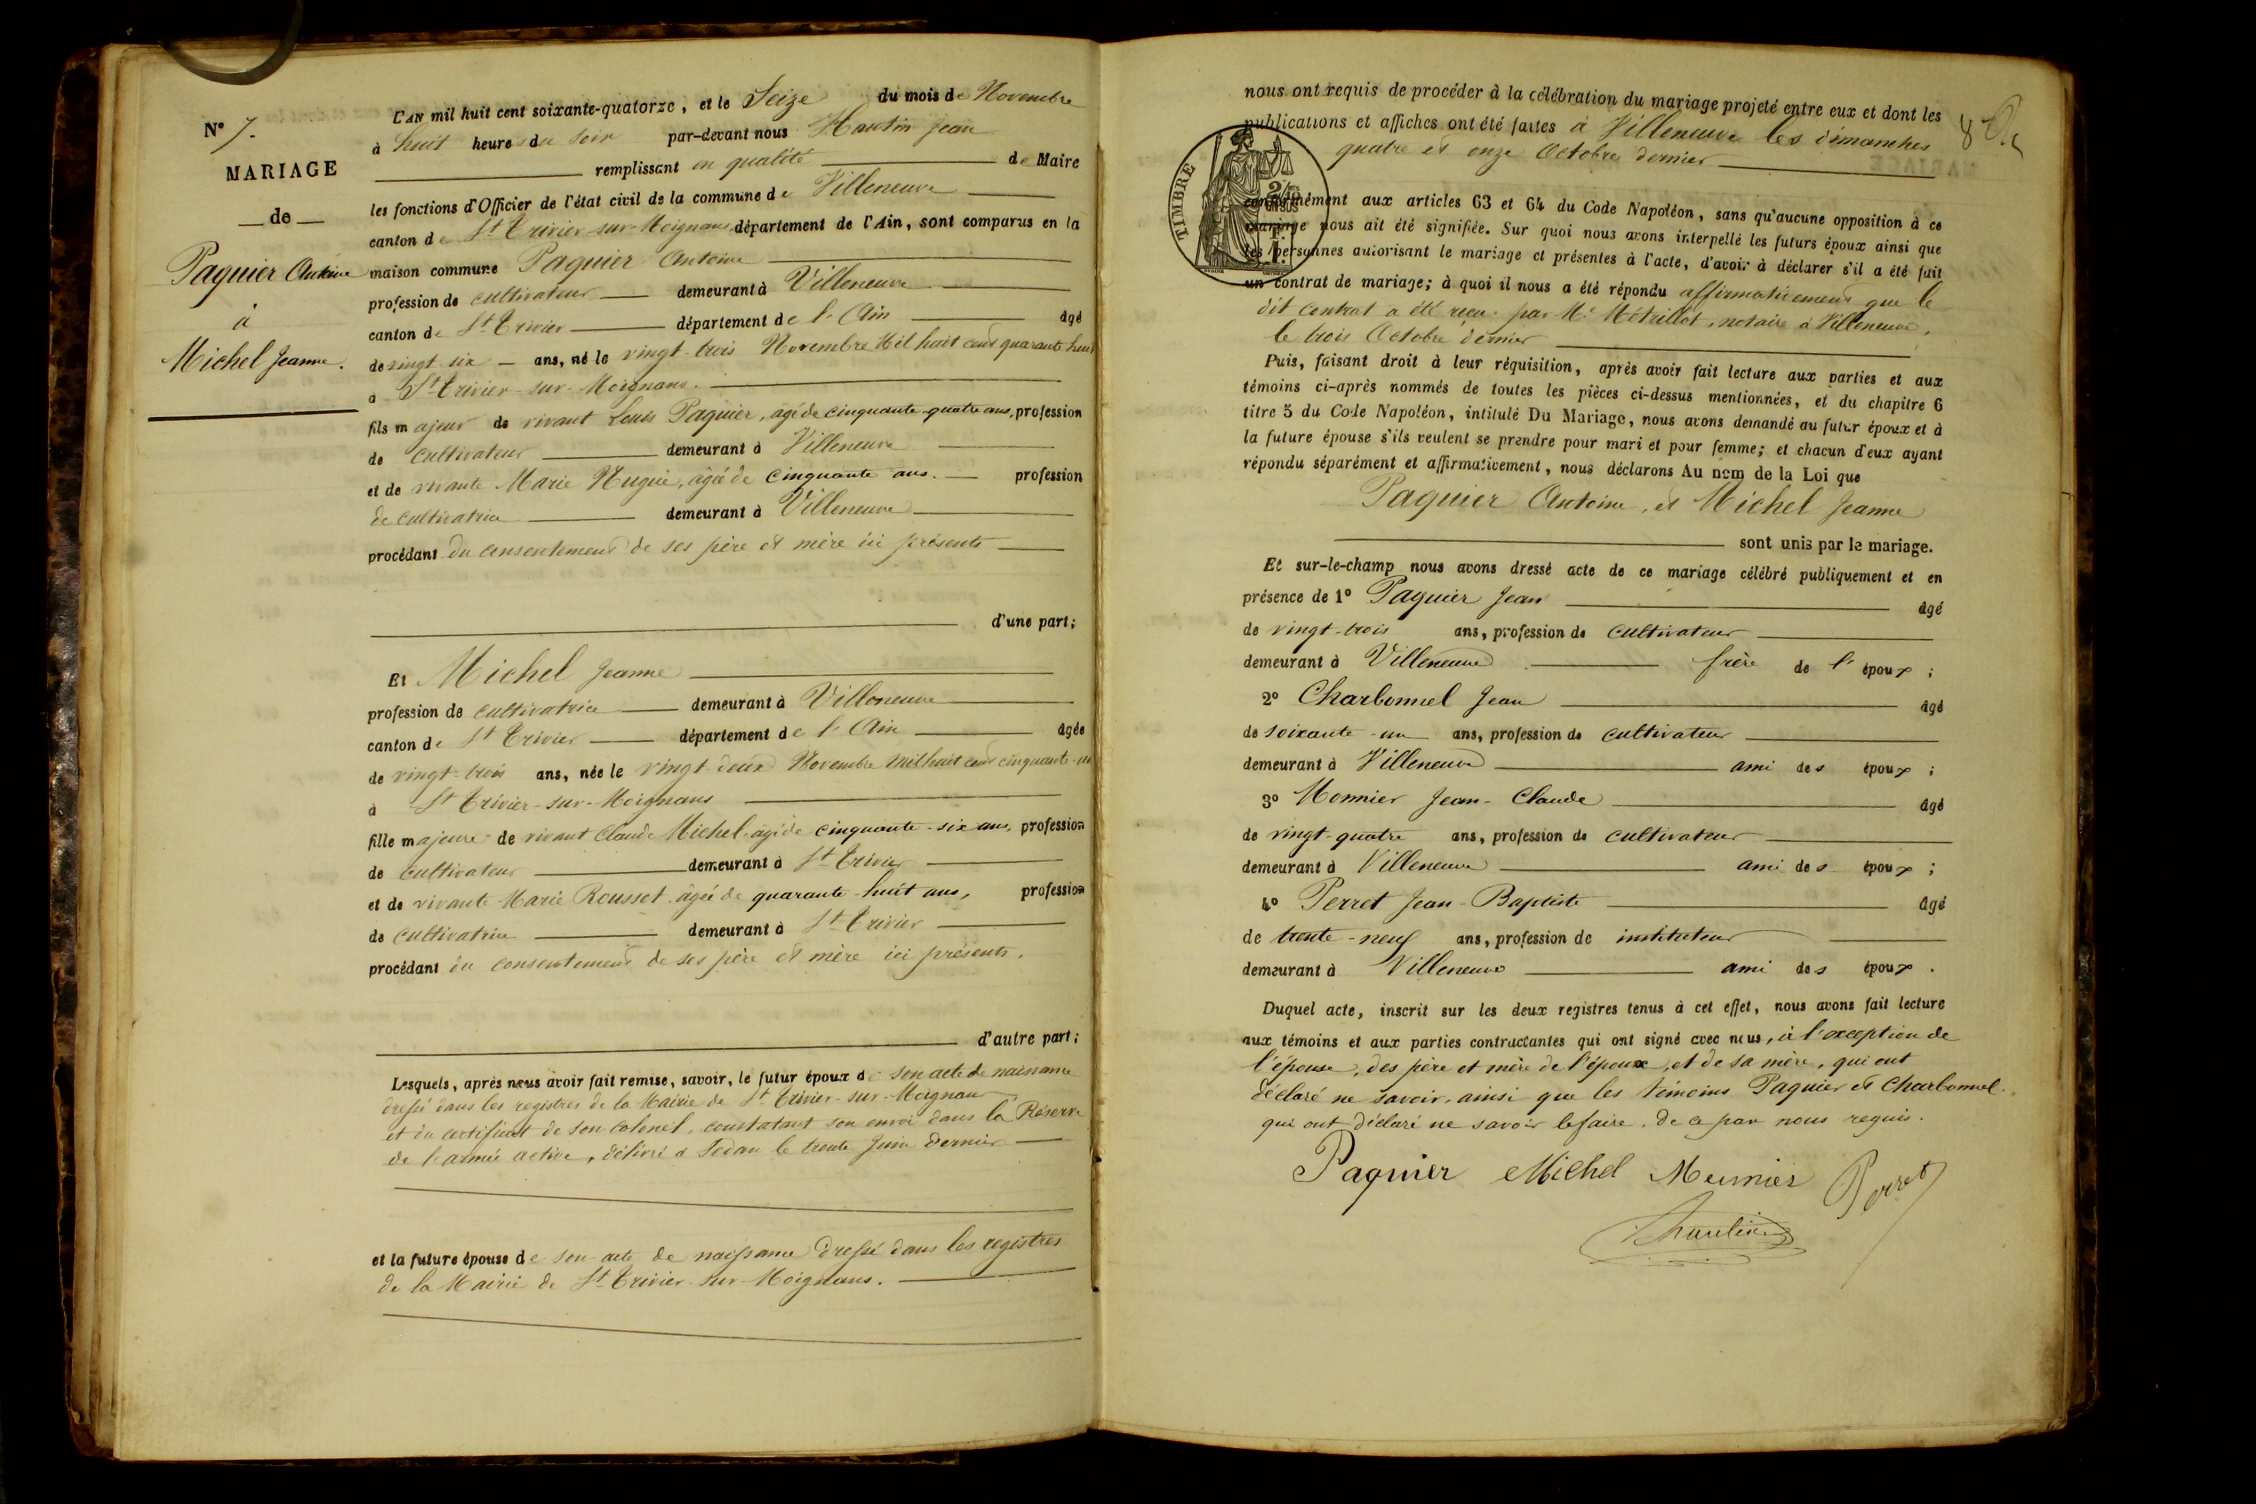 N° 7.
MARIAGE
de
Paquier Antoine
à
Michel Jeanne.
L'AN mil huit cent soixante-quatorze, et le Seize du mois de Novembre
à huit heures du soir par-devant nous Hautin Jean
remplissant en qualité de Maire
les fonctions d'Officier de l'état civil de la commune de Villeneuve
canton de St Trivier-sur-Moignans département de l'Ain, sont comparus en la
maison commune Paquier Antoine
profession de cultivateur demeurant à Villeneuve
canton de St Trivier département de l'Ain âgé
de vingt-six ans, né le vingt-trois Novembre Mil huit cent quarante huit
à St Trivier-sur-Moignans.
fils majeur de vivant Louis Paquier, âgé de cinquante-quatre ans, profession
de cultivateur demeurant à Villeneuve
et de vivante Marie Nugue, âgée de cinquante ans. profession
de cultivatrice demeurant à Villeneuve
procédant du consentement de ses père et mère ici présents
d'une part;
Et Michel Jeanne
profession de cultivatrice demeurant à Villeneuve
canton de St Trivier département de l'Ain âgée
de vingt-trois ans, née le vingt-deux Novembre mil huit cent cinquante-un
à St Trivier-sur-Moignans
fille majeure de vivant Claude Michel âgé de cinquante-six ans, profession
de cultivateur demeurant à St Trivier
et de vivante Marie Rousset âgée de quarante-huit ans, profession
de cultivatrice demeurant à St Trivier
procédant du consentement de ses père et mère ici présents.
d'autre part;
Lesquels, après nous avoir fait remise, savoir, le futur époux de son acte de naissance
dressé dans les registres de la Mairie de St Trivier-sur-Moignans
et du certificat de son colonel, constatant son envoi dans la Réserve
de l'armée active, délivré à Sedan le trente Juin dernier
et la future épouse de son acte de naissance dressé dans les registres
de la Mairie de St Trivier-sur-Moignans.
nous ont requis de procéder à la célébration du mariage projeté entre eux et dont les
publications et affiches ont été faites à Villeneuve les dimanches
quatre et onze Octobre dernier
TIMBRE
conformément aux articles 63 et 64 du Code Napoléon, sans qu'aucune opposition à ce
mariage nous ait été signifiée. Sur quoi nous avons interpellé les futurs époux ainsi que
les personnes autorisant le mariage et présentes à l'acte, d'avoir à déclarer s'il a été fait
un contrat de mariage; à quoi il nous a été répondu affirmativement que le
dit contrat a été reçu par Me Métrillot, notaire à Villeneuve,
le trois Octobre dernier
Puis, faisant droit à leur réquisition, après avoir fait lecture aux parties et aux
témoins ci-après nommés de toutes les pièces ci-dessus mentionnées, et du chapitre 6
titre 5 du Code Napoléon, intitulé Du Mariage, nous avons demandé au futur époux et à
la future épouse s'ils veulent se prendre pour mari et pour femme; et chacun d'eux ayant
répondu séparément et affirmativement, nous déclarons Au nom de la Loi que
Paquier Antoine, et Michel Jeanne
sont unis par le mariage.
Et sur-le-champ nous avons dressé acte de ce mariage célébré publiquement et en
présence de 1° Paquier Jean âgé
de vingt-trois ans, profession de cultivateur
demeurant à Villeneuve frère de l'époux;
2° Charbonnel Jean âgé
de soixante-un ans, profession de cultivateur
demeurant à Villeneuve ami des époux;
3° Monnier Jean-Claude âgé
de vingt-quatre ans, profession de cultivateur
demeurant à Villeneuve ami des époux;
4° Perret Jean-Baptiste âgé
de trente-neuf ans, profession de instituteur
demeurant à Villeneuve ami des époux.
Duquel acte, inscrit sur les deux registres tenus à cet effet, nous avons fait lecture
aux témoins et aux parties contractantes qui ont signé avec nous, à l'exception de
l'épouse, des père et mère de l'époux, et de sa mère, qui ont
déclaré ne savoir, ainsi que les témoins Paquier et Charbonnel
qui ont déclaré ne savoir le faire, de ce par nous requis.
Paquier Michel Meunier Perret
Hautin